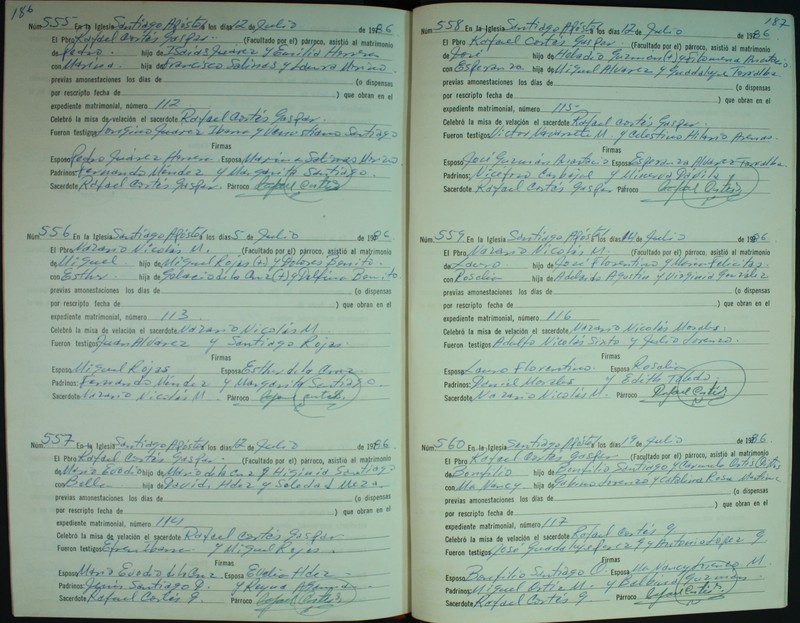 186
Núm. 555 En la Iglesia Santiago Apóstol los días 12 de Julio de 1986.
El Pbro. Rafael Cortés Gaspar. (Facultado por el) párroco, asistió al matrimonio
de Pedro hijo de Isaias Juarez y Emilia Herrera
con Marina hija de Francisco Salinas y Laura Merino
previas amonestaciones los días de (o dispensas
por rescripto fecha de ) que obran en el
expediente matrimonial, número 112
Celebró la misa de velación el sacerdote Rafael Cortés Gaspar.
Fueron testigos Juarez y Santiago
Firmas
Esposo Pedro Juárez Herrera Esposa Marina Salinas Merino
Padrinos: Fernando Mendez y Margarita Santiago.
Sacerdote Rafael Cortés Gaspar Párroco Rafael Cortés
Núm. 556 En la Iglesia Santiago Apóstol los días 5 de Julio de 1986
El Pbro. Nazario Nicolás M. (Facultado por el) párroco, asistió al matrimonio
de Miguel hijo de Miguel Rojas (+) y Dolores Benito.
con Esther hija de de la Cruz (+) y Delfina Benito
previas amonestaciones los días de (o dispensas
por rescripto fecha de ) que obran en el
expediente matrimonial, número 113.
Celebró la misa de velación el sacerdote Nazario Nicolás M.
Fueron testigos Juan Alvarez y Santiago Rojas.
Firmas
Esposo Miguel Rojas Esposa Esther de la Cruz.
Padrinos: Fernando Méndez y Margarita Santiago.
Sacerdote Nazario Nicolás M. Párroco Rafael Cortés
Núm. 557 En la Iglesia Santiago Apóstol los días 12 de Julio de 1986.
El Pbro. Rafael Cortés Gaspar. (Facultado por el) párroco, asistió al matrimonio
de Mario Evodio hijo de Mario de la Cruz y Higinia Santiago
con hija de David Hdez y Soledad Meza.
previas amonestaciones los días de (o dispensas
por rescripto fecha de ) que obran en el
expediente matrimonial, número 114
Celebró la misa de velación el sacerdote Rafael Cortés Gaspar
Fueron testigos y Miguel Rojas.
Firmas
Esposo Mario Evodio de la Cruz Esposa Hdez
Padrinos: Jesús Santiago G. y Reyna
Sacerdote Rafael Cortés G. Párroco Rafael Cortés
187
Núm. 558 En la Iglesia Santiago Apóstol los días 12 de Julio de 1986.
El Pbro. Rafael Cortés Gaspar (Facultado por el) párroco, asistió al matrimonio
de José hijo de Heladio Guzmán (+) y Filomena
con Esperanza hija de Miguel Alvarez y Guadalupe Torralba
previas amonestaciones los días de (o dispensas
por rescripto fecha de ) que obran en el
expediente matrimonial, número 115
Celebró la misa de velación el sacerdote Rafael Cortés Gaspar
Fueron testigos Victor Navarrete M. y Celestino Hilario Arenas.
Firmas
Esposo José Guzmán Esposa Esperanza Alvarez Torralba
Padrinos: Niceforo Carbajal y Minerva Dávila
Sacerdote Rafael Cortés Gaspar Párroco Rafael Cortés
Núm. 559 En la Iglesia Santiago Apóstol los días 14 de Julio de 1986.
El Pbro. Nazario Nicolás M. (Facultado por el) párroco, asistió al matrimonio
de Lauro hijo de José Florentino y Maria Felicitas
con Rosalia hija de Adelaido Agustin y Virginia González
previas amonestaciones los días de (o dispensas
por rescripto fecha de ) que obran en el
expediente matrimonial, número 116
Celebró la misa de velación el sacerdote Nazario Nicolás Morales
Fueron testigos Adolfo Nicolás Sixto y Julio Lorenzo.
Firmas
Esposo Lauro Florentino. Esposa Rosalia
Padrinos: Daniel Morales y Edith Toledo.
Sacerdote Nazario Nicolás M. Párroco Rafael Cortés
Núm. 560 En la Iglesia Santiago Apóstol los días 19 de Julio de 1986.
El Pbro. Rafael Cortés Gaspar (Facultado por el) párroco, asistió al matrimonio
de Bonfilio hijo de Bonfilio Santiago y Carmela Ortis
con Ma. Nancy hija de Gabino Lorenzo y Catalina Rosa Martinez
previas amonestaciones los días de (o dispensas
por rescripto fecha de ) que obran en el
expediente matrimonial, número 117
Celebró la misa de velación el sacerdote Rafael Cortés G.
Fueron testigos José Guadalupe G. y Antonio Lopez G.
Firmas
Esposo Bonfilio Santiago O. Esposa Ma. Nancy Lorenzo M.
Padrinos: Miguel Ortiz M. y Guzmán
Sacerdote Rafael Cortés G Párroco Rafael Cortés